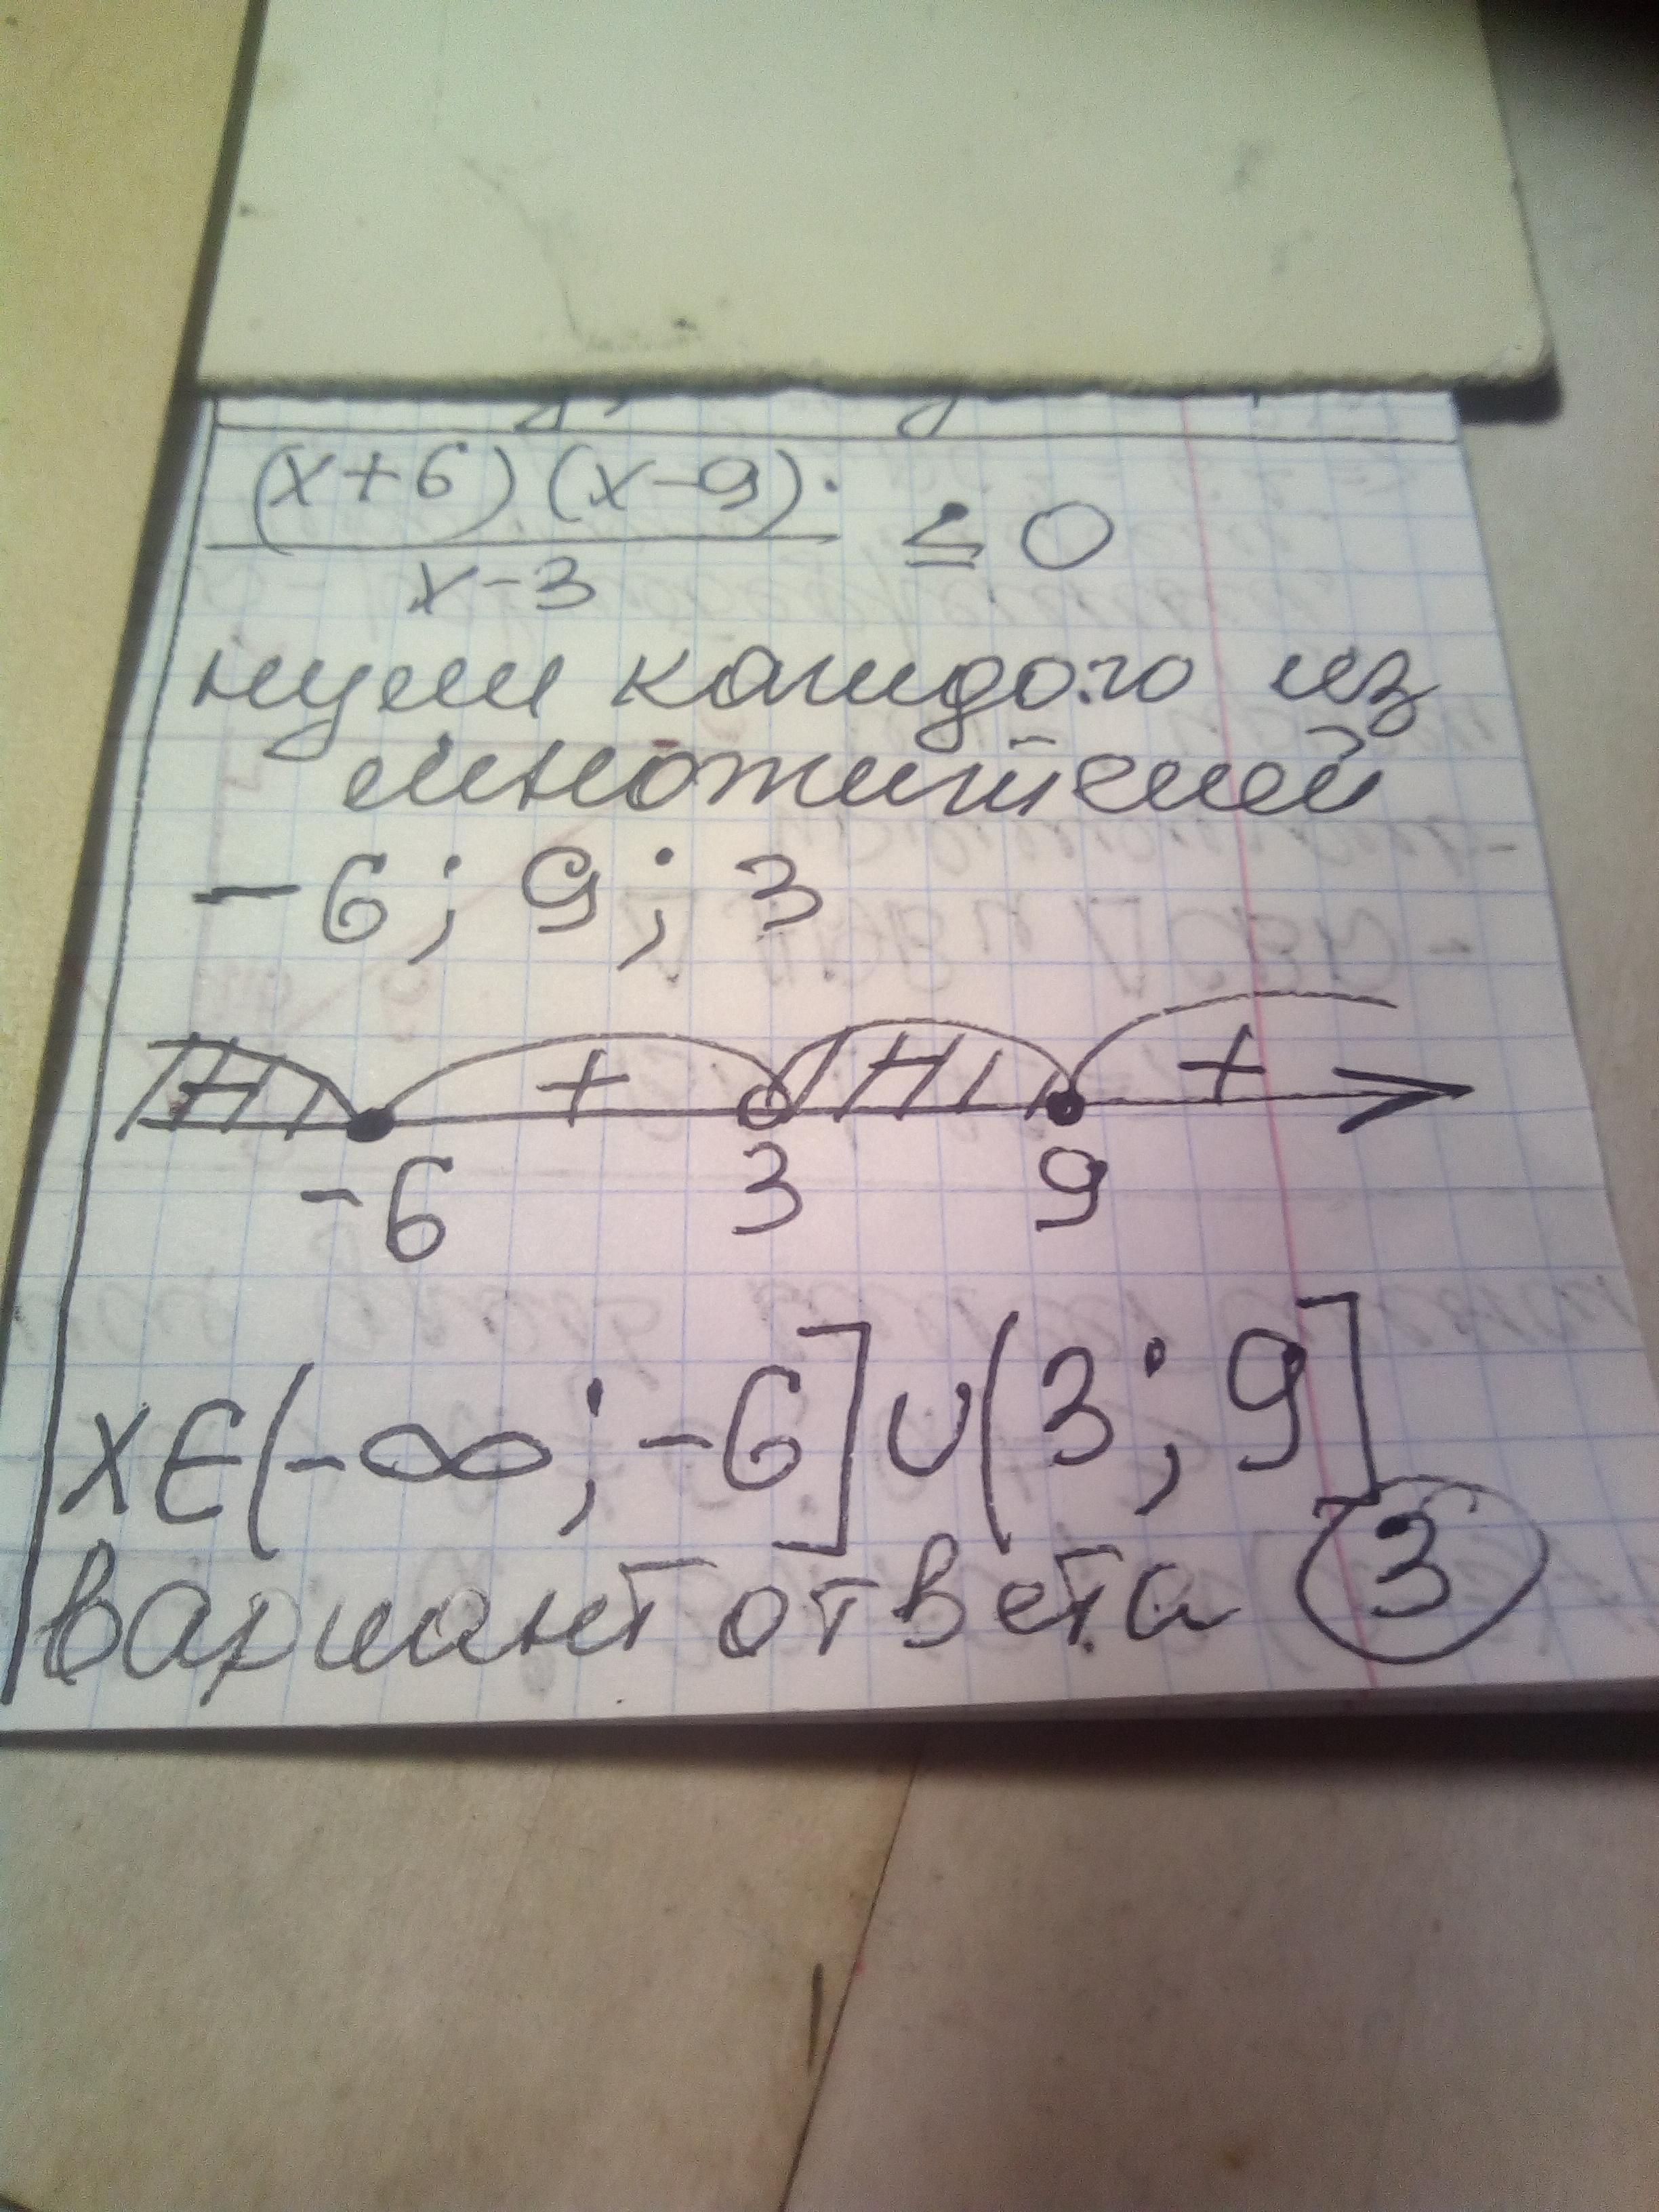 (x+6)(x-9)
x-3
≤ 0
нули каждого из
множителей
-6; 9; 3
- + - +
-6 3 9
x∈(-∞; -6]∪(3; 9]
вариант ответа 3